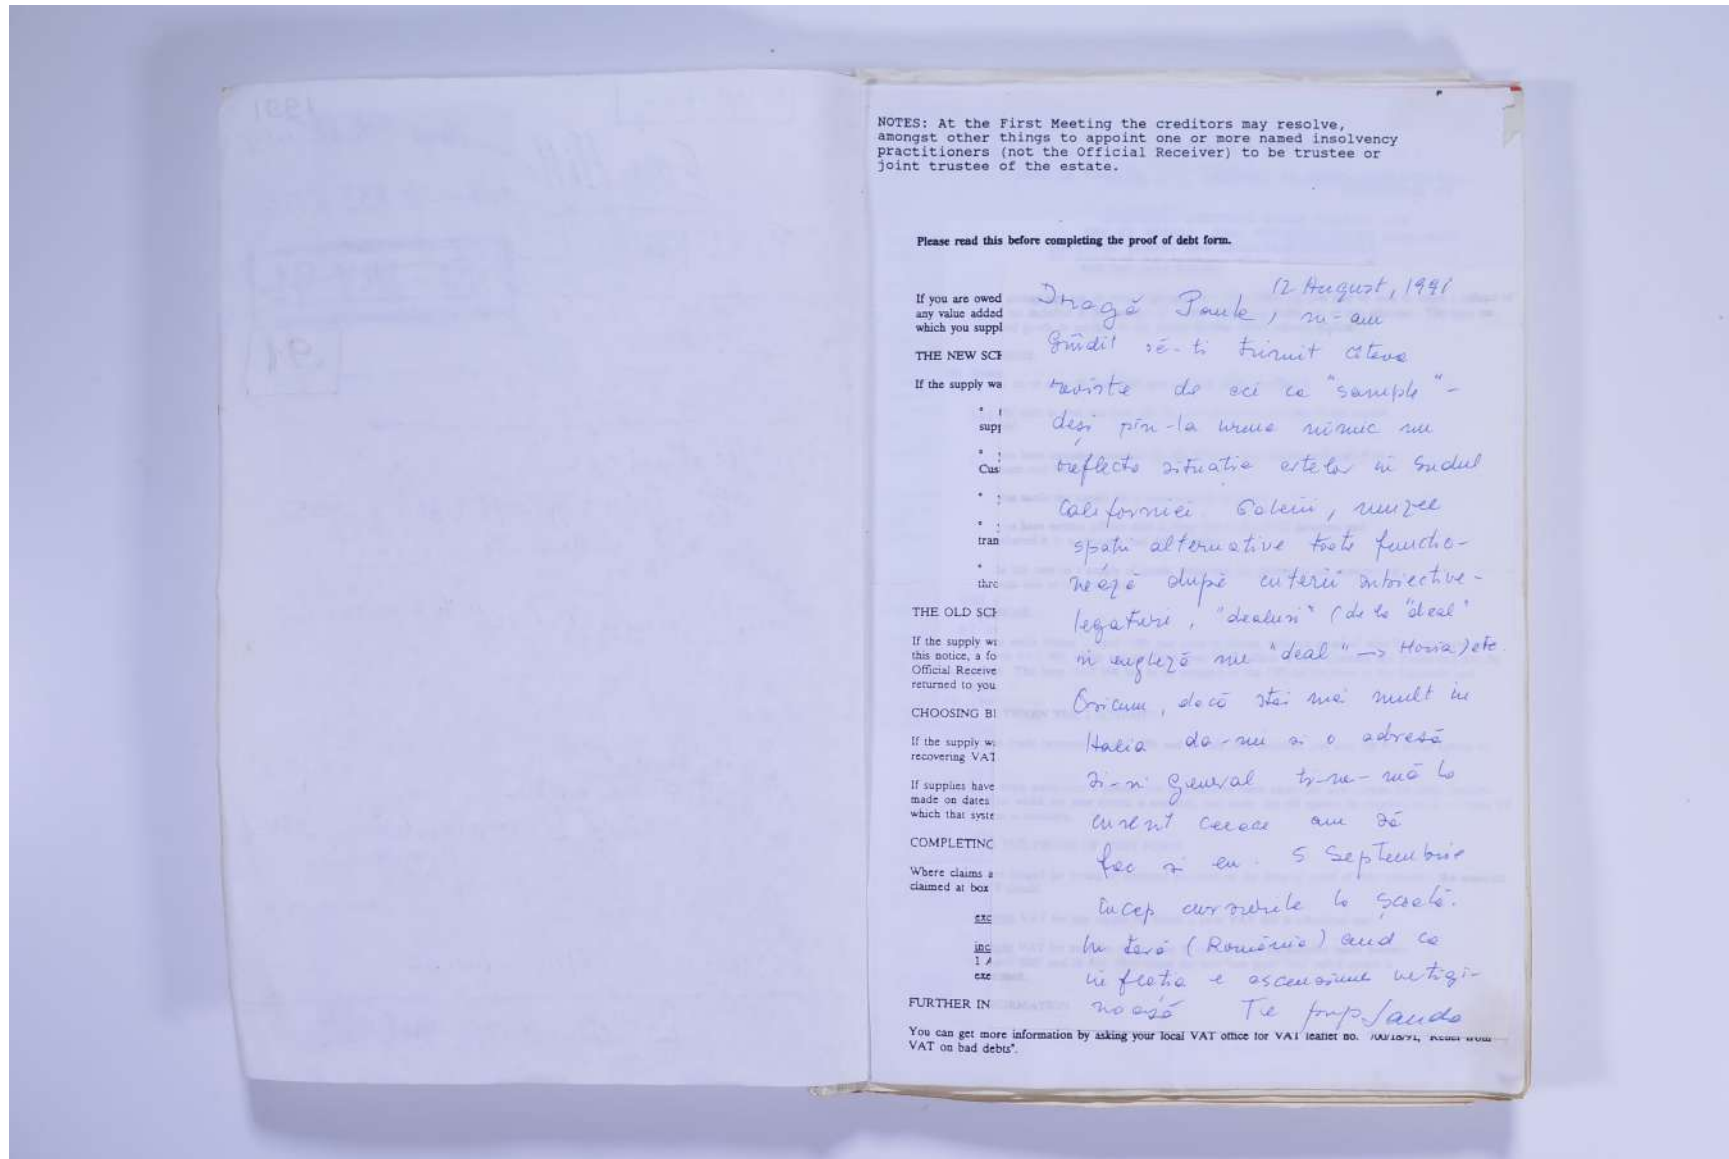 1991
91
NOTES: At the First Meeting the creditors may resolve,
amongst other things to appoint one or more named insolvency
practitioners (not the Official Receiver) to be trustee or
joint trustee of the estate.
Please read this before completing the proof of debt form.
If you are owed
any value added
which you suppl
THE NEW SCH
If the supply wa
supp
Cus
tran
thro
THE OLD SCH
If the supply w
this notice, a fo
Official Receive
returned to you
CHOOSING BE
If the supply w
recovering VAT
If supplies have
made on dates
which that syste
COMPLETING
Where claims a
claimed at box
exc
inc
1 A
exe
FURTHER IN
You can get more information by asking your local VAT office for VAT leaflet no. 700/18/91, "Relief from
VAT on bad debts".
12 August, 1991
Dragă Paule, m-am
gîndit să-ti trimit câteva
reviste de aci ca "sample" -
deși pîn-la urma nimic nu
reflecta situatia artelor in Sudul
Californiei. Galerii, muzee
spatii alternative toate functio-
nează după criterii subiective -
legaturi, "dealuri" (de la "deal"
in engleză nu "deal" → Horia) etc.
Oricum, dacă stai mai mult in
Italia da-mi si o adresă
si-n general ti-ne-mă la
curent ceeace am să
fac si eu. 5 Septembrie
incep cursurile la Școală.
In tară (România) aud ca
inflatia e ascensiune vertigi-
noasă Te pup Sanda